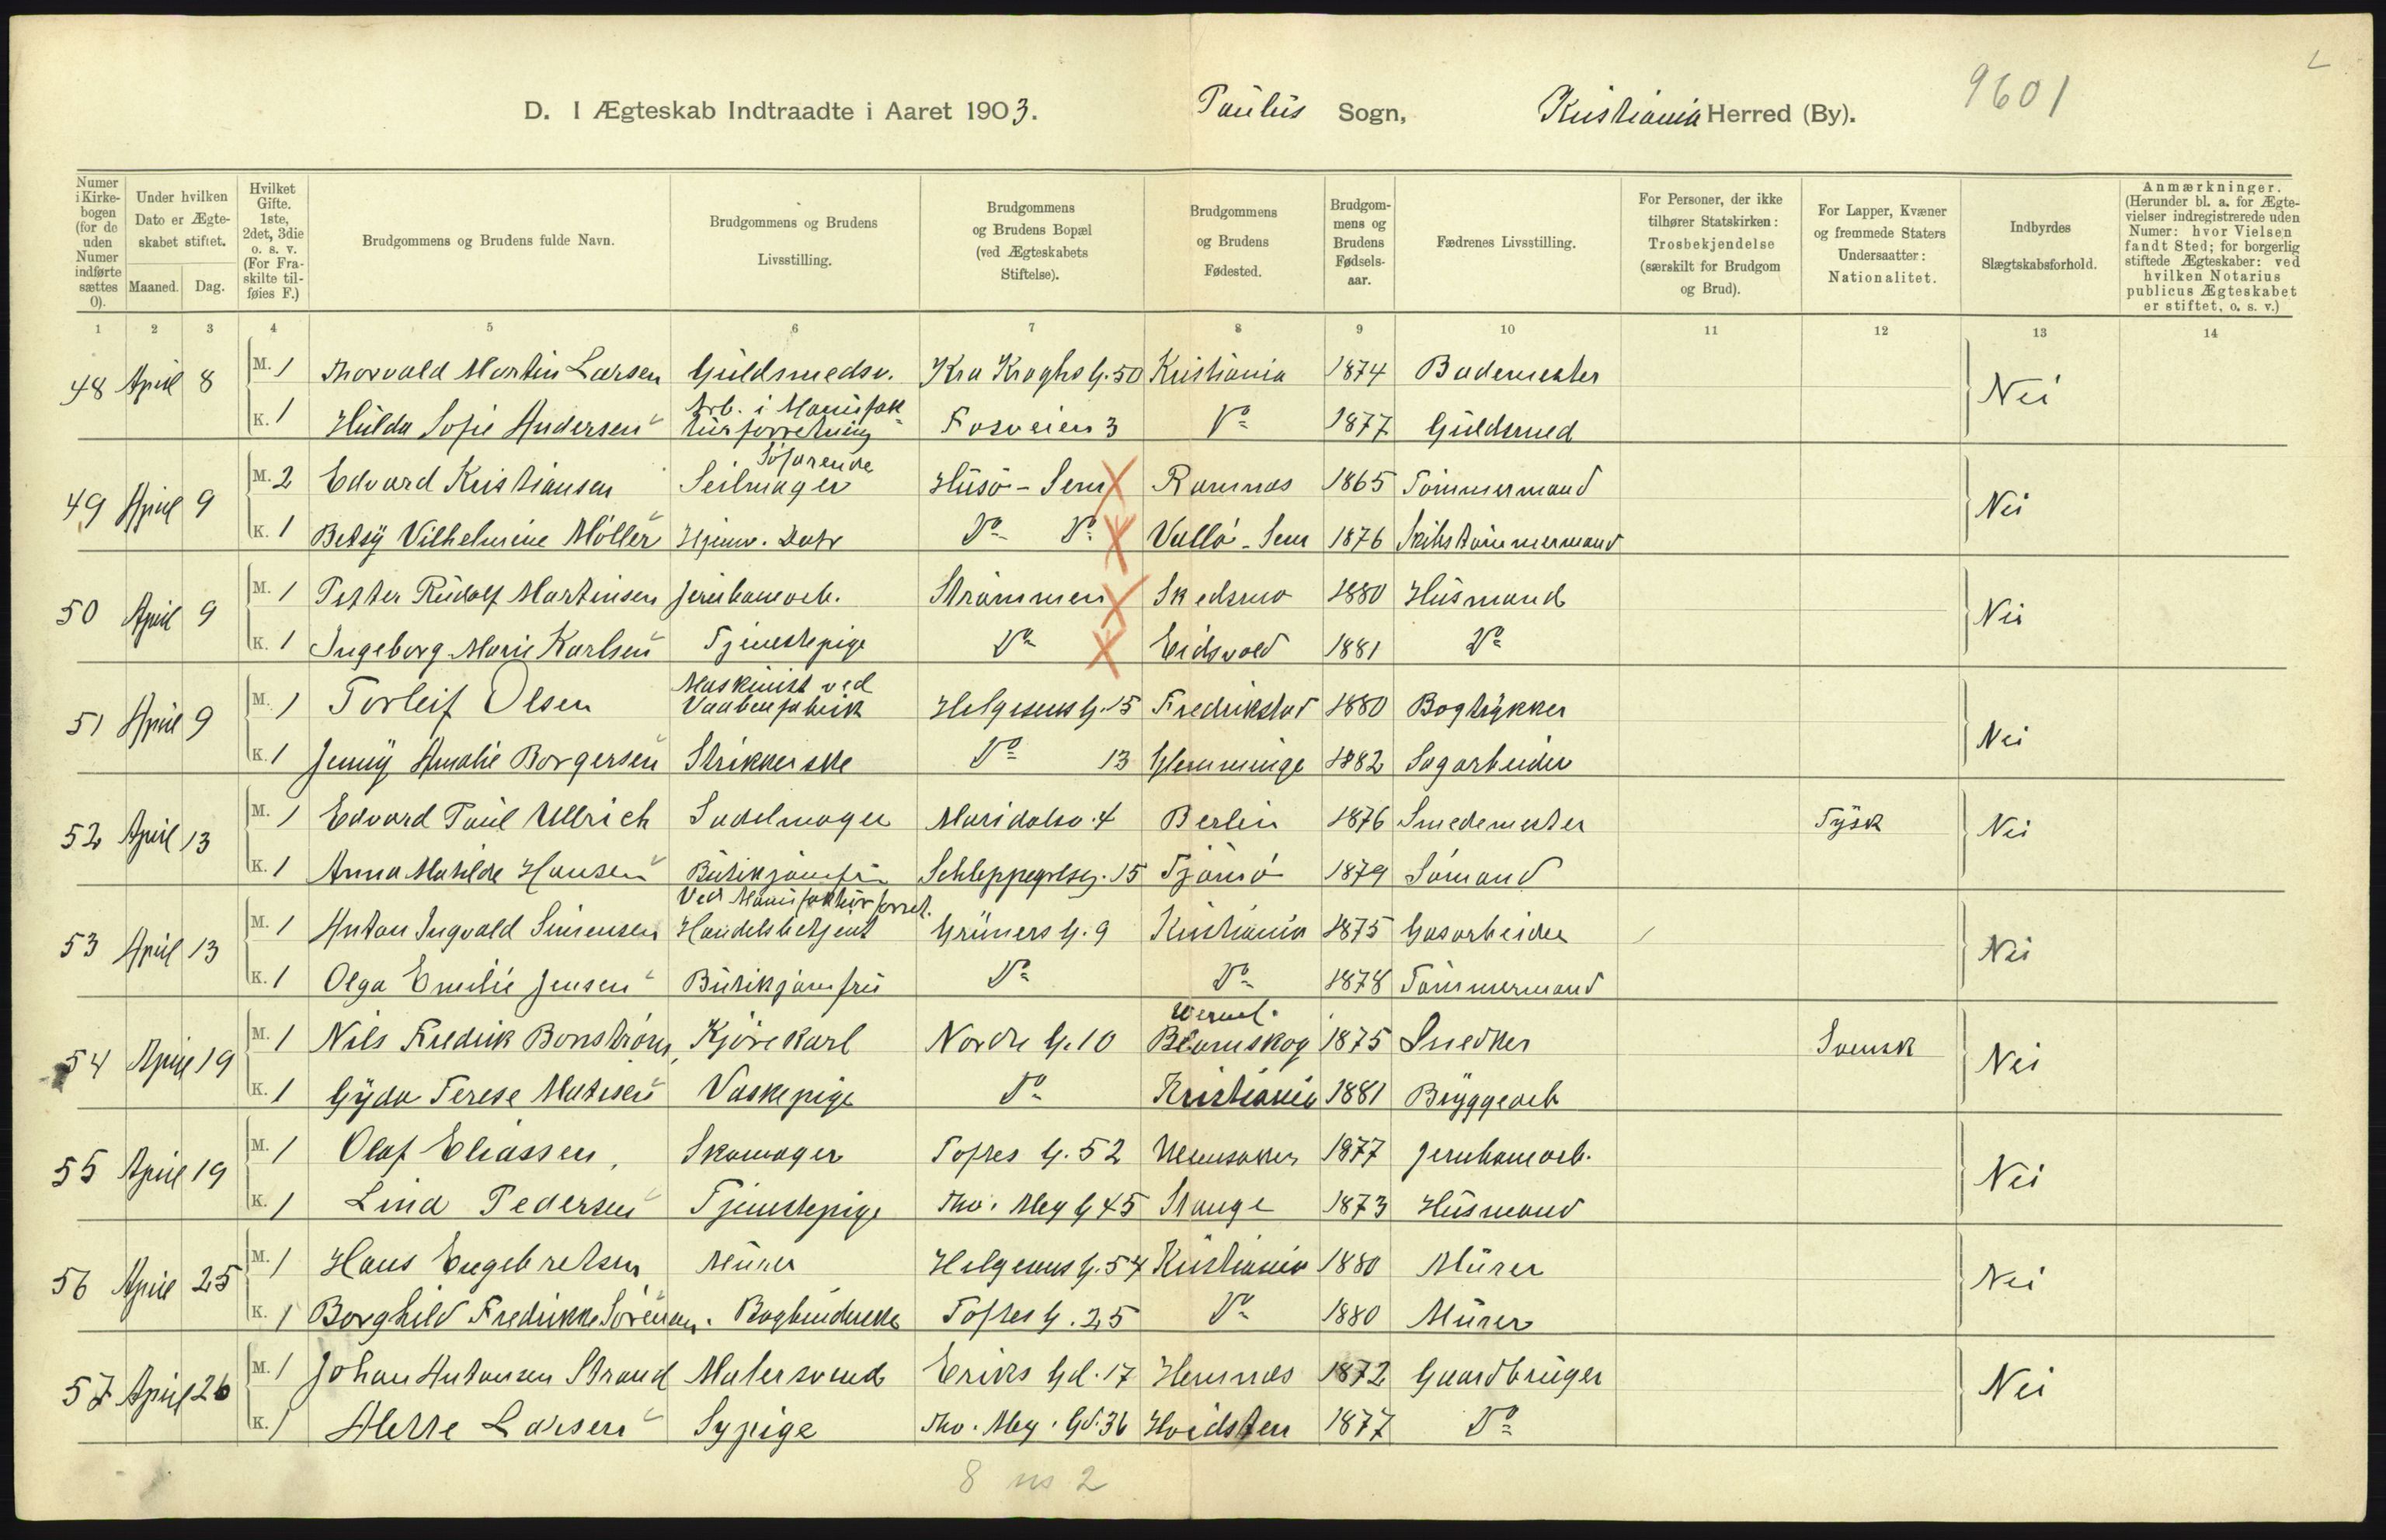 9601
D. I Ægteskab Indtraadte i Aaret 1903. Paulus Sogn, Kristiania Herred (By).
Numer i Kirkebogen (for de uden Numer indførte sættes 0).
Under hvilken Dato er Ægteskabet stiftet.
Maaned. Dag.
Hvilket Gifte. 1ste, 2det, 3die o. s. v. (For Fraskilte tilføies F.)
Brudgommens og Brudens fulde Navn.
Brudgommens og Brudens Livsstilling.
Brudgommens og Brudens Bopæl (ved Ægteskabets Stiftelse).
Brudgommens og Brudens Fødested.
Brudgommens og Brudens Fødselsaar.
Fædrenes Livsstilling.
For Personer, der ikke tilhører Statskirken: Trosbekjendelse (særskilt for Brudgom og Brud).
For Lapper, Kvæner og fremmede Staters Undersaatter: Nationalitet.
Indbyrdes Slægtskabsforhold.
Anmærkninger. (Herunder bl. a. for Ægtevielser indregistrerede uden Numer: hvor Vielsen fandt Sted; for borgerlig stiftede Ægteskaber: ved hvilken Notarius publicus Ægteskabet er stiftet, o. s. v.)
1 2 3 4 5 6 7 8 9 10 11 12 13 14
48 April 8 M. 1 Thorvald Martin Larsen Guldsmedsv. Kra Kroghs G. 50 Kristiania 1874 Bademester Nei
K. 1 Hulda Sofie Andersen Arb. i Manufakturforretning Fosveien 3 Do 1877 Guldsmed
49 April 9 M. 2 Edvard Kristiansen Søfarende Seilmager Husø - Sem Ramnæs 1865 Tømmermand Nei
K. 1 Betsy Vilhelmine Møller Hjemv. Datr Do Do Vallø - Sem 1876 Skibstømmermand
50 April 9 M. 1 Petter Rudolf Martinsen Jernbanearb. Strømmen Skedsmo 1880 Husmand Nei
K. 1 Ingeborg Marie Karlsen Tjenestepige Do Eidsvold 1881 Do
51 April 9 M. 1 Torleif Olsen Maskinist ved Vaabenfabrik Helgesens G. 15 Fredrikstad 1880 Bogtrykker Nei
K. 1 Jenny Amalie Borgersen Strikkerske Do 13 Glemminge 1882 Sagarbeider
52 April 13 M. 1 Edvard Paul Ullrich Sadelmager Maridalsv. 4 Berlin 1876 Smedemester Tysk Nei
K. 1 Anna Matilde Hansen Butikjomfru Schleppegrlsg. 15 Tjømø 1879 Sømand
53 April 13 M. 1 Anton Ingvald Simensen Ved Manufakturforret. Handelsbetjent Grüners G. 9 Kristiania 1875 Gasarbeider Nei
K. 1 Olga Emilie Jensen Butikjomfru Do Do 1878 Tømmermand
54 April 19 M. 1 Nils Fredrik Bonstrøm Kjørekarl Nordre G. 10 Werml. Blomskog 1875 Snedker Svensk Nei
K. 1 Gyda Terese Matisen Vaskepige Do Kristiania 1881 Bryggearb
55 April 19 M. 1 Olaf Eliassen Skomager Toftes G. 52 Ullensaker 1877 Jernbanearb. Nei
K. 1 Lina Pedersen Tjenestepige Thv. Mey G 45 Stange 1873 Husmand
56 April 25 M. 1 Hans Engebretsen Murer Helgesens G. 54 Kristiania 1880 Murer Nei
K. 1 Borghild Fredrikke Sørensen. Bogbinderske Toftes G. 25 Do 1880 Murer
57 April 26 M. 1 Johan Antonsen Strand Malersvend Eriks Gd. 17 Hemnæs 1872 Gaardbruger Nei
K. 1 Alette Larsen Sypige Thv. Mey. Gd. 36 Hvidsten 1877 Do
8 2